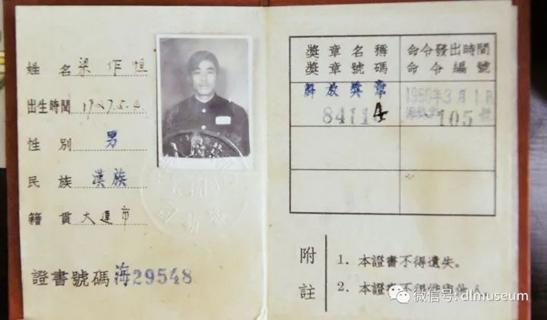 姓名 梁作恒
出生時間
性別 男
民族 漢族
籍貫 大連市
證書號碼 海29548
獎章名稱
獎章號碼
命令發出時間
命令編號
解放獎章
84114
1960年3月1日
105 號
附註
1. 本證書不得遺失。
2. 本證
人
微信号: dlmuseum